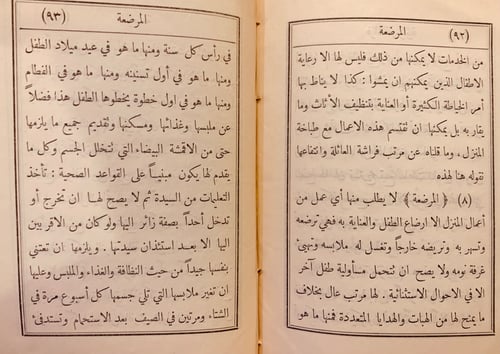 (٩٢) المرضعة
من الخدمات لا يمكنها من ذلك فليس لها الا رعاية
الاطفال الذين يمكنهم ان يمشوا : كذا لا يناط بها
أمر الخياطة الكثيرة أو العناية بتنظيف الأثاث وما
يقاربه بل يمكنها ان تقتسم هذه الاعمال مع طباخة
المنزل ، وما قلناه عن مرتب فراشة العائلة وانتفاعها
نقوله هنا لهذه
(٨) ﴿ المرضعة ﴾ لا يطلب منها أي عمل من
أعمال المنزل الا ارضاع الطفل والعناية به فهي ترضعه
وتسهر به وتريضه خارجاً وتغسل له ملابسه وتهيئ
غرفة نومه ولا يصح ان تتحمل مسأولية طفل آخر
الا في الاحوال الاستثنائية . لها مرتب عال بخلاف
ما يمنح لها من الهبات والهدايا المتعددة فمنها ما هو
المرضعة (٩٣)
في رأس كل سنة ومنها ما هو في عيد ميلاد الطفل
ومنها ما هو في أول تسنينه ومنها ما هو في الفطام
ومنها ما هو في اول خطوة يخطوها الطفل هذا فضلاً
عن ملبسها وغذائها ومسكنها وتقديم جميع ما يلزمها
حتى من الاقمشة البيضاء التي تتخلل الجسم وكل ما
يقدم لها يكون مبنياً على القواعد الصحية : تأخذ
التعليمات من السيدة ثم لا يصح لها ان تخرج أو
تدخل أحداً بصفة زائر اليها ولو كان من الاقربين
اليها الا بعد استئذان سيدتها . ويلزمها ان تعتني
بنفسها جيداً من حيث النظافة والغذاء والملبس وعليها
ان تغير ملابسها التي تلي جسمها كل أسبوع مرة في
الشتاء ومرتين في الصيف بعد الاستحمام وتستدفئ